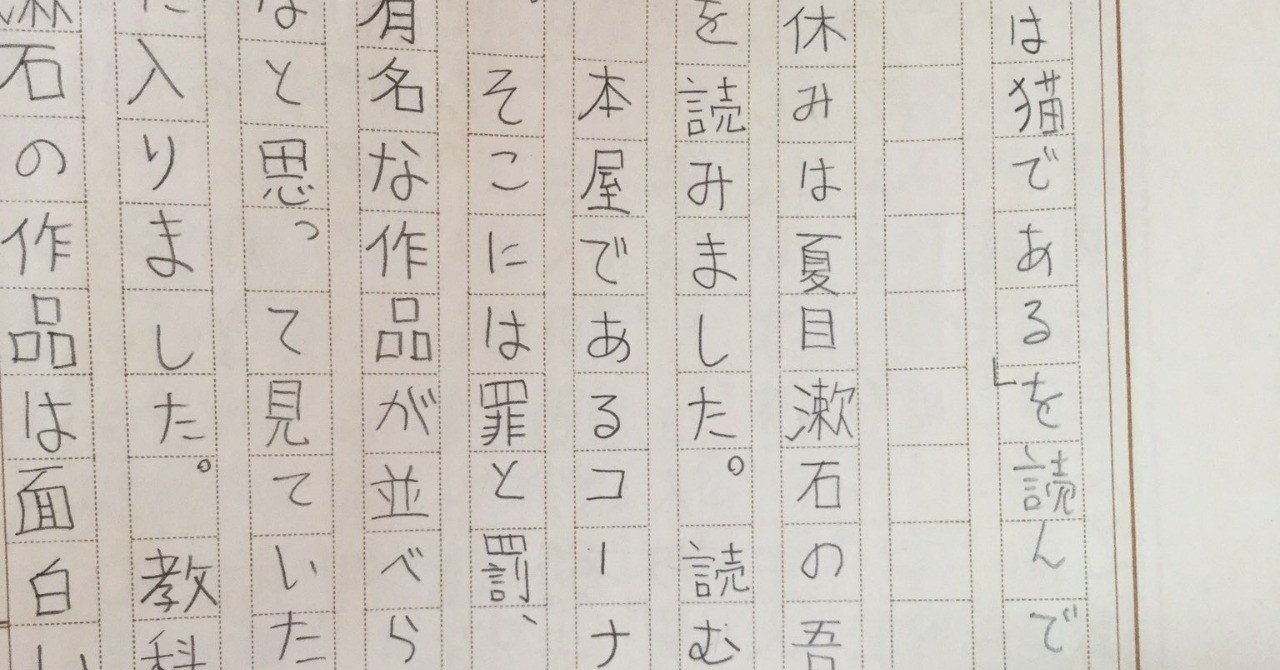 は猫である」を読んで
休みは夏目漱石の吾
を読みました。読む
本屋であるコーナ
そこには罪と罰、
有名な作品が並べら
なと思って見ていた
に入りました。教科
漱石の作品は面白い